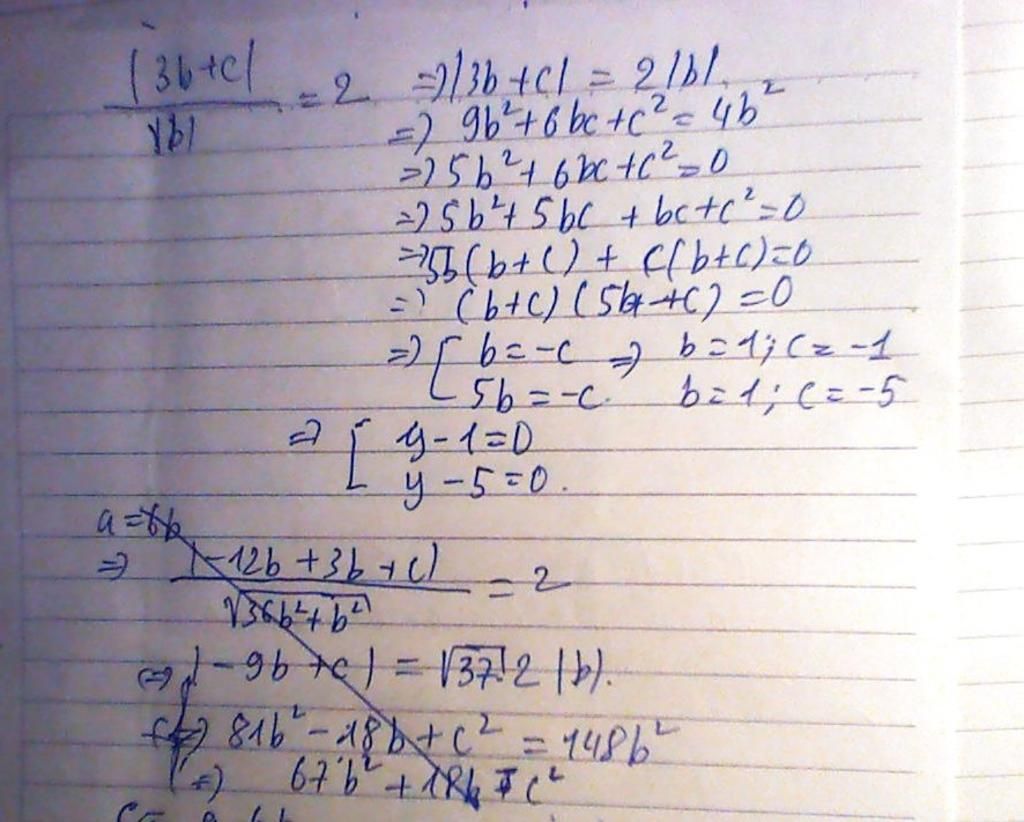 |3b+c| / √|b| = 2 ⇒ |3b+c| = 2|b|.
⇒ 9b²+6bc+c² = 4b²
⇒ 5b²+6bc+c² = 0
⇒ 5b²+5bc+bc+c² = 0
⇒ 5b(b+c) + c(b+c) = 0
⇒ (b+c)(5b+c) = 0
⇒ [ b = -c ⇒ b = 1; c = -1
5b = -c. b = 1; c = -5
⇒ [ y - 1 = 0
y - 5 = 0.
a = 6b
⇒ |-12b + 3b + c| / √(36b²+b²) = 2
⇔ |-9b + c| = √37 2 |b|.
⇒ 81b² - 18b + c² = 148b²
⇒ 67b² + 18b c²